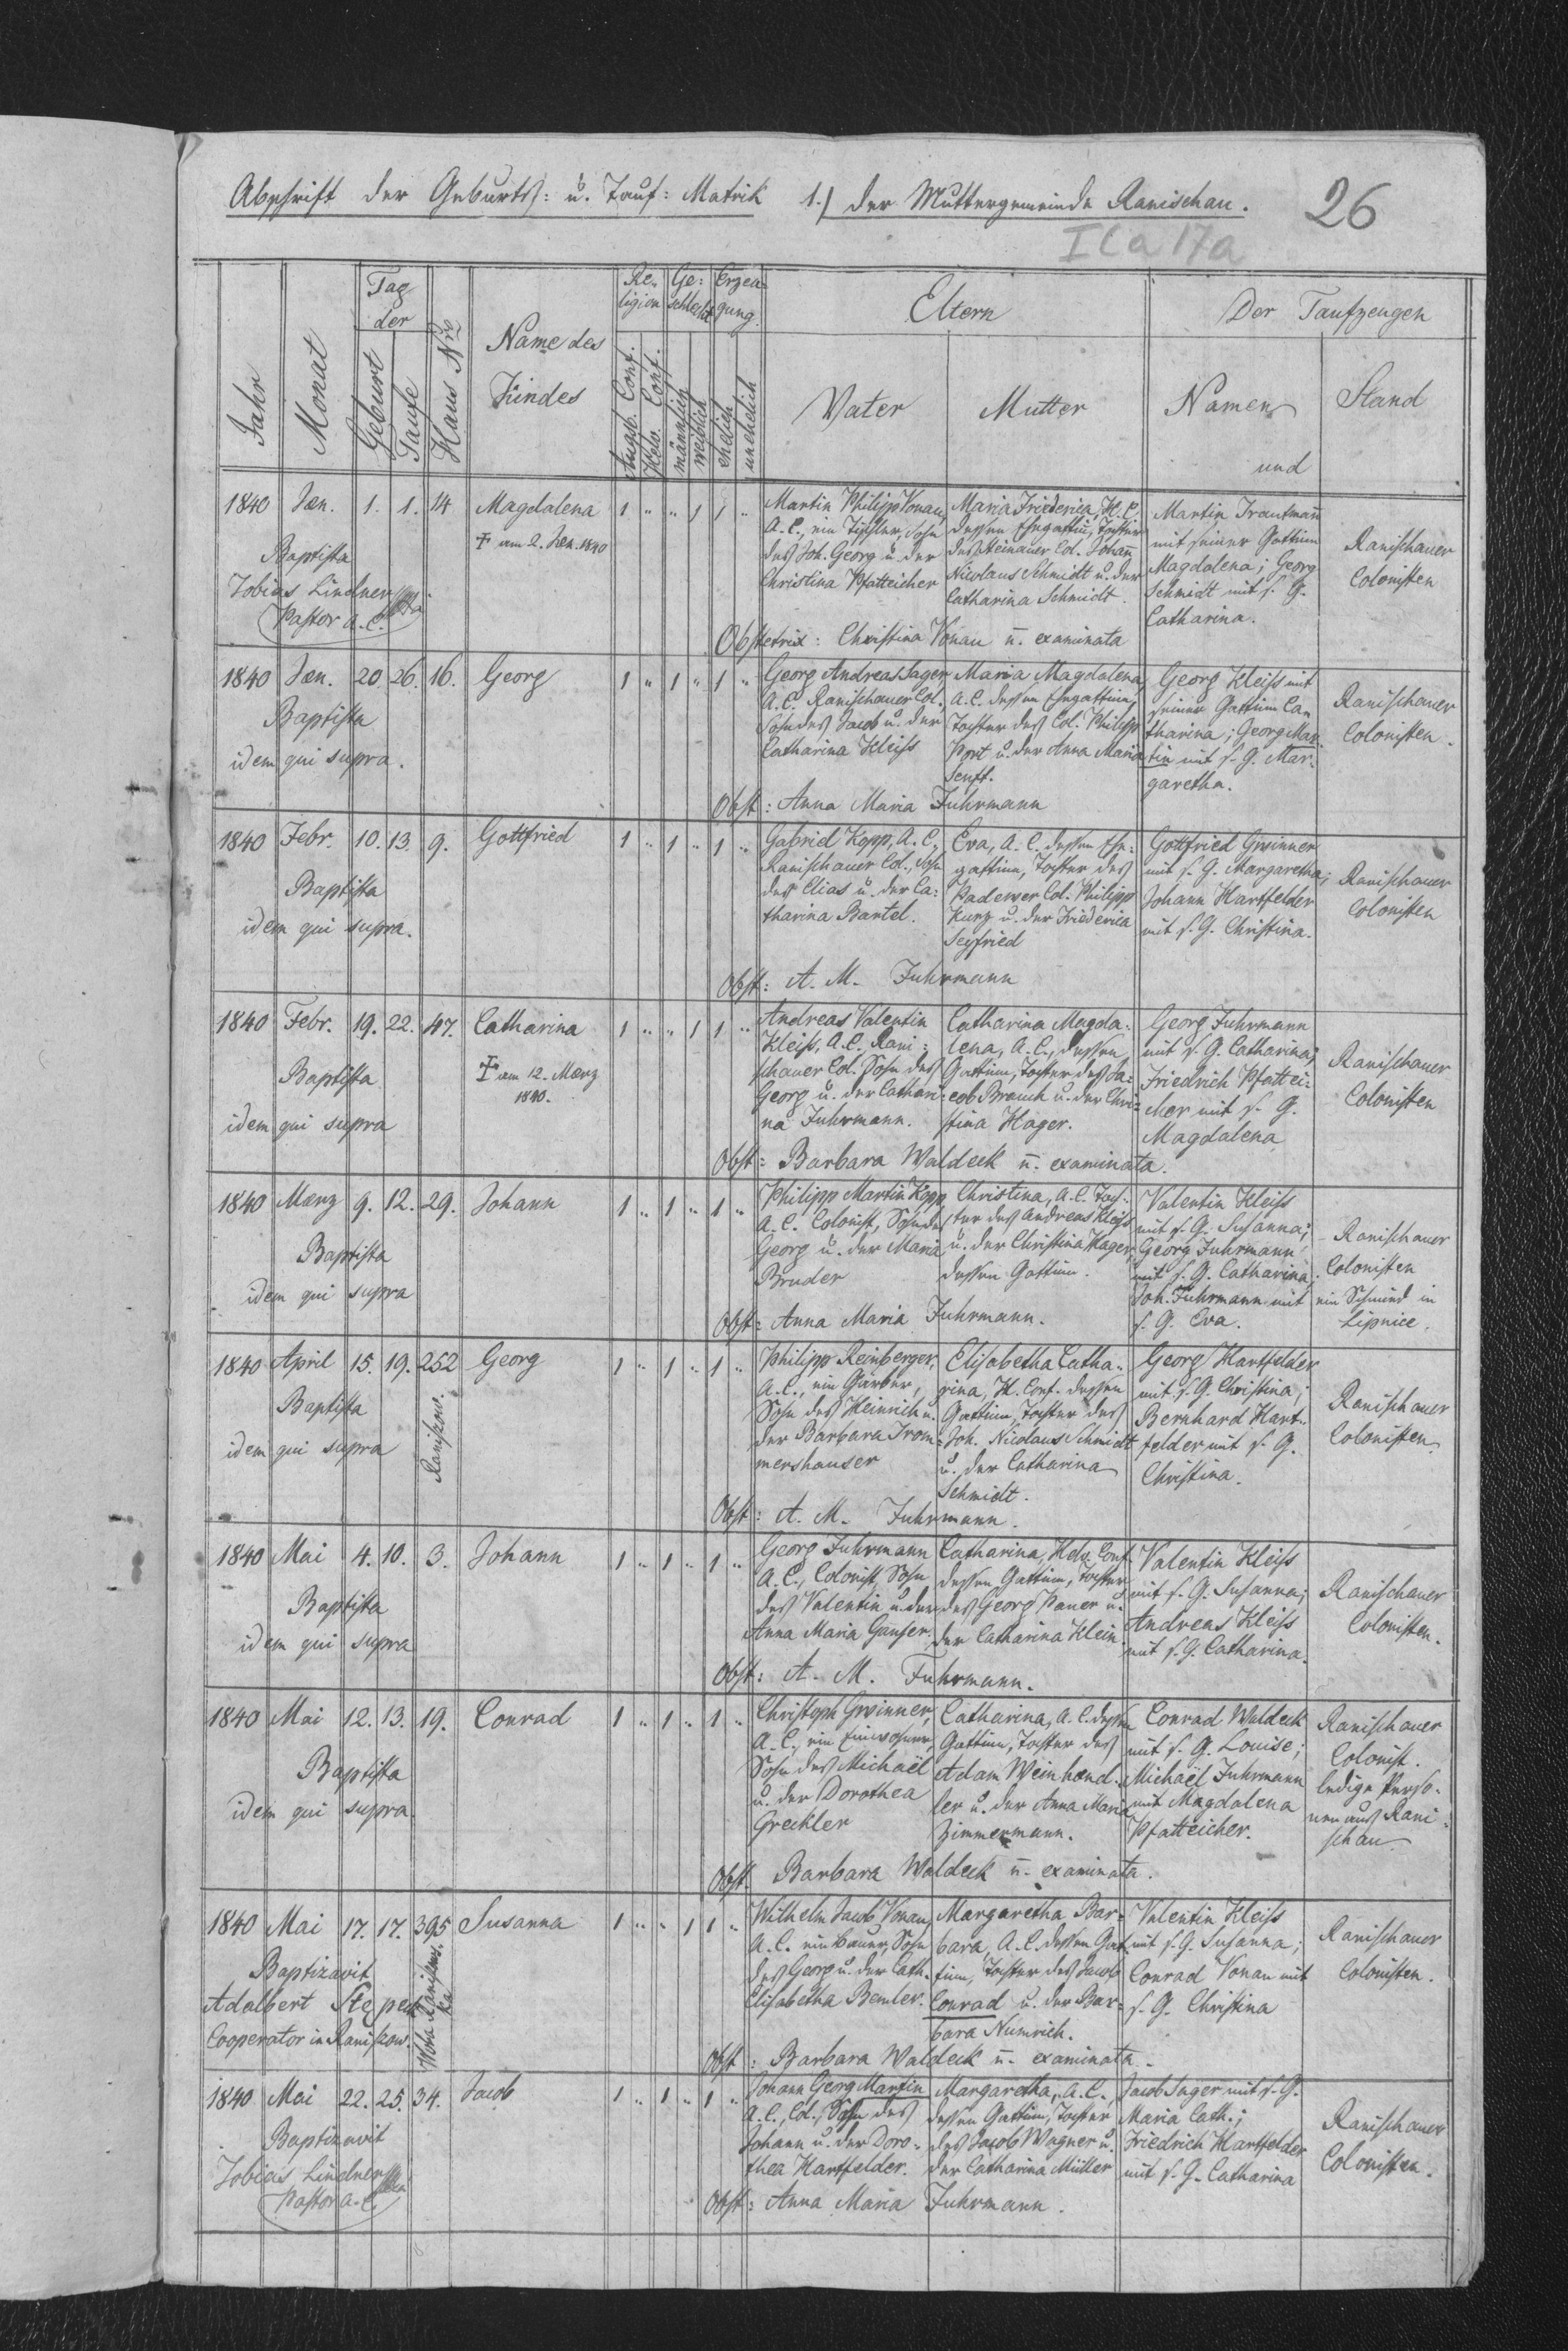 Abschrift der Geburts= u. Tauf= Matrik 1.) der Muttergemeinde Ranischau. 26
I C a 17a
Jahr
Monat
Tag der
Geburt
Taufe
Haus Nro
Name des Kindes
Religion
Augsb. Conf.
Helv. Conf.
Geschlecht
männlich
weiblich
Erzeugung.
ehelich
unehelich
Eltern
Vater
Mutter
Der Taufzeugen
Namen
und
Stand
1840 Jæn. 1. 1. 14 Magdalena 1 " " 1 1 "
✝ am 2. Jæn. 1840
Baptista
Tobias Lindner
Pastor A. C.
Martin Philipp Vonau,
A. C., ein Tischler, Sohn
des Joh. Georg u. der
Christina Pfatteicher
Maria Friederica, H. C.
dessen Ehegattin, Tochter
des Steinauer Col. Johann
Nicolaus Schmidt u. der
Catharina Schmidt.
Martin Trautmann
mit seiner Gattinn
Magdalena; Georg
Schmidt mit s. G.
Catharina.
Ranischauer
Colonisten
Obstetrix: Christina Vonau n. examinata
1840 Jæn. 20. 26. 16. Georg 1 " 1 " 1 "
Baptista
idem qui supra.
Georg Andreas Jager
A. C. Ranischauer Col.,
Sohn des Jacob u. der
Catharina Kleiss
Maria Magdalena,
A. C. dessen Ehegattinn,
Tochter des Col. Philipp
Port u. der Anna Maria
Senft.
Georg Kleiss mit
seiner Gattinn Ca=
tharina; Georg Mar=
tin mit s. G. Mar=
garetha.
Ranischauer
Colonisten.
Obst: Anna Maria Fuhrmann
1840 Febr. 10. 13. 9. Gottfried 1 " 1 " 1 "
Baptista
idem qui supra.
Gabriel Kopp, A. C.,
Ranischauer Col., Sohn
des Elias u. der Ca=
tharina Bartel.
Eva, A. C. dessen Ehe=
gattinn, Tochter des
Padewer Col. Philipp
Kurz u. der Friederica
Seyfried
Gottfried Gwinner
mit s. G. Margaretha;
Johann Hartfelder
mit s. G. Christina.
Ranischauer
Colonisten
Obst: A. M. Fuhrmann
1840 Febr. 19. 22. 47. Catharina 1 " " 1 1 "
✝ am 12. Mærz
1840.
Baptista
idem qui supra
Andreas Valentin
Kleiss, A. C. Rani=
schauer Col. Sohn des
Georg u. der Cathari=
na Fuhrmann.
Catharina Magda=
lena, A. C., dessen
Gattinn, Tochter des Ja=
cob Brauch u. der Chri=
stina Hager.
Georg Fuhrmann
mit s. G. Catharina;
Friedrich Pfattei=
cher mit s. G.
Magdalena
Ranischauer
Colonisten
Obst: Barbara Waldeck n. examinata.
1840 Mærz 9. 12. 29. Johann 1 " 1 " 1 "
Baptista
idem qui supra
Philipp Martin Kopp
A. C. Colonist, Sohn des
Georg u. der Maria
Bruder
Christina, A. C. Toch=
ter des Andreas Kleiss
u. der Christina Hager,
dessen Gattinn.
Valentin Kleiss
mit s. G. Susanna;
Georg Fuhrmann
mit s. G. Catharina.
Joh. Fuhrmann mit
s. G. Eva.
Ranischauer
Colonisten
ein Schmied in
Lipnice.
Obst: Anna Maria Fuhrmann.
1840 April 15. 19. 252 Georg 1 " 1 " 1 "
Raniszow.
Baptista
idem qui supra
Philipp Reinberger,
A. C., ein Gärber,
Sohn des Heinrich u.
der Barbara From=
mershauser
Elisabetha Catha=
rina, H. Conf. dessen
Gattinn, Tochter des
Joh. Nicolaus Schmidt
u. der Catharina
Schmidt.
Georg Hartfelder
mit s. G. Christina;
Bernhard Hart=
felder mit s. G.
Christina.
Ranischauer
Colonisten.
Obst: A. M. Fuhrmann.
1840 Mai 4. 10. 3. Johann 1 " 1 " 1 "
Baptista
idem qui supra
Georg Fuhrmann
A. C., Colonist, Sohn
des Valentin u. der
Anna Maria Ganser.
Catharina, Helv. Conf.
dessen Gattinn, Tochter
des Georg Pauer u.
der Catharina Klein.
Valentin Kleiss
mit s. G. Susanna;
Andreas Kleiss
mit s. G. Catharina.
Ranischauer
Colonisten.
Obst: A. M. Fuhrmann.
1840 Mai 12. 13. 19. Conrad 1 " 1 " 1 "
Baptista
idem qui supra
Christoph Gwinner,
A. C., ein Einwohner,
Sohn des Michaël
u. der Dorothea
Greckler
Catharina, A. C. dessen
Gattinn, Tochter des
Adam Weinhænd=
ler u. der Anna Maria
Zimmermann.
Conrad Waldeck
mit s. G. Louise;
Michaël Fuhrmann
mit Magdalena
Pfatteicher.
Ranischauer
Colonist.
ledige Perso=
nen aus Rani=
schau
Obst. Barbara Waldeck n. examinata.
1840 Mai 17. 17. 395 Susanna 1 " " 1 1 "
Wola Raniszows.
ka
Baptizavit
Adalbert
Cooperator in Raniszow.
Wilhelm Jacob Vonau,
A. C. ein Bauer, Sohn
des Georg u. der Cath.
Elisabetha Bemler.
Margaretha Bar=
bara, A. C. dessen Gat=
tinn, Tochter des Jacob
Conrad u. der Bar=
bara Numrich.
Valentin Kleiss
mit s. G. Susanna;
Conrad Vonau mit
s. G. Christina
Ranischauer
Colonisten.
Obst: Barbara Waldeck n. examinata.
1840 Mai 22. 25. 34. Jacob 1 " 1 " 1 "
Baptizavit
Tobias Lindner
Pastor A. C.
Johann Georg Martin
A. C., Col., Sohn des
Johann u. der Doro=
thea Hartfelder.
Margaretha, A. C.,
dessen Gattinn, Tochter
des Jacob Wagner u.
der Catharina Müller
Jacob Jager mit s. G.
Maria Cath.;
Friedrich Hartfelder
mit s. G. Catharina
Ranischauer
Colonisten.
Obst: Anna Maria Fuhrmann.